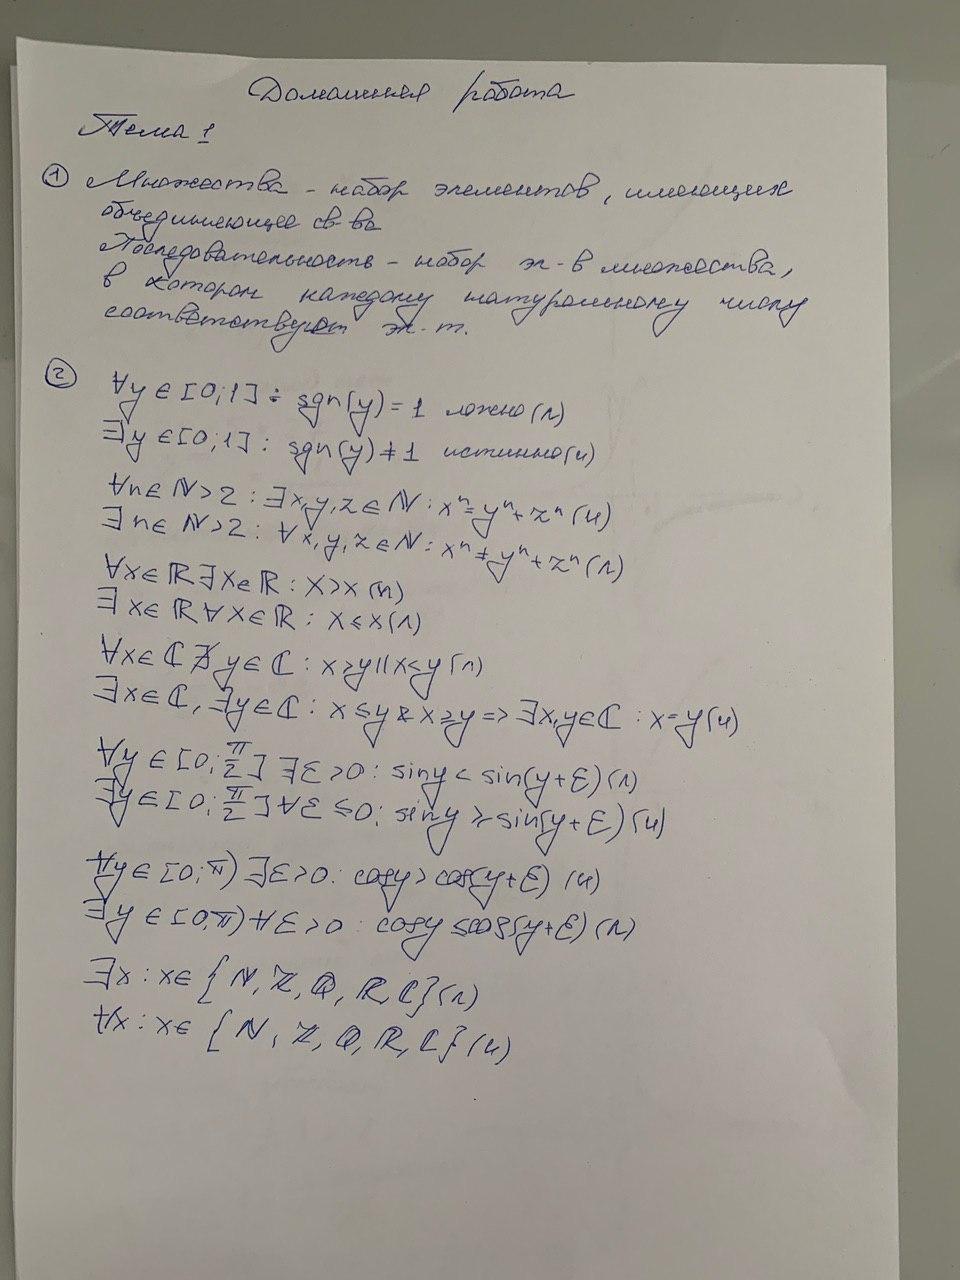 Домашняя работа
Тема 1
① Множества - набор элементов, имеющих
объединяющее св-во
Последовательность - набор эл-в множества,
в котором каждому натуральному числу
соответствует эл-т.
② ∀y ∈ [0;1] : sgn(y) = 1 ложно (л)
∃y ∈ [0;1] : sgn(y) ≠ 1 истинно (и)
∀n ∈ ℕ > 2 : ∃x,y,z ∈ ℕ : xⁿ = yⁿ + zⁿ (и)
∃n ∈ ℕ > 2 : ∀x,y,z ∈ ℕ : xⁿ ≠ yⁿ + zⁿ (л)
∀x ∈ ℝ ∃X ∈ ℝ : X > x (и)
∃x ∈ ℝ ∀X ∈ ℝ : X ≤ x (л)
∀x ∈ ℂ ∄ y ∈ ℂ : x > y || x < y (л)
∃x ∈ ℂ, ∃y ∈ ℂ : x ≤ y & x ≥ y => ∃x,y ∈ ℂ : x = y (и)
∀y ∈ [0; π/2] ∃ε > 0 : sin y < sin(y + ε) (л)
∃y ∈ [0; π/2] ∀ε ≤ 0 : sin y ≥ sin(y + ε) (и)
∀y ∈ [0; π) ∃ε > 0 : cos y > cos(y + ε) (и)
∃y ∈ [0; π) ∀ε > 0 : cos y ≤ cos(y + ε) (л)
∃x : x ∈ {ℕ, ℤ, ℚ, ℝ, ℂ} (л)
∀x : x ∈ {ℕ, ℤ, ℚ, ℝ, ℂ} (и)